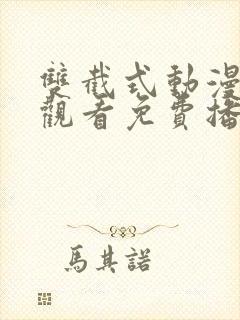 雙截式動漫
觀看免費播
馬其諾